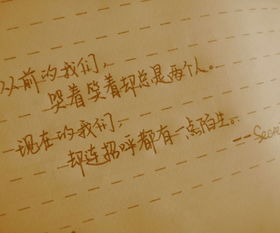 以前的我们、
哭着笑着却总是两个人。
现在的我们、
却连招呼都有一点陌生。
---- Secre